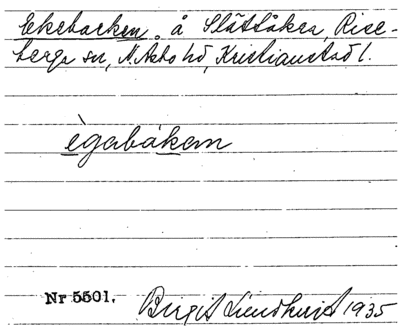 Ekebacken å Slättåkra, Rise-
berga sn, N. Åsbo hd, Kristianstad l.
ègabákan
Nr 5501. Birgit Lundkvist 1935